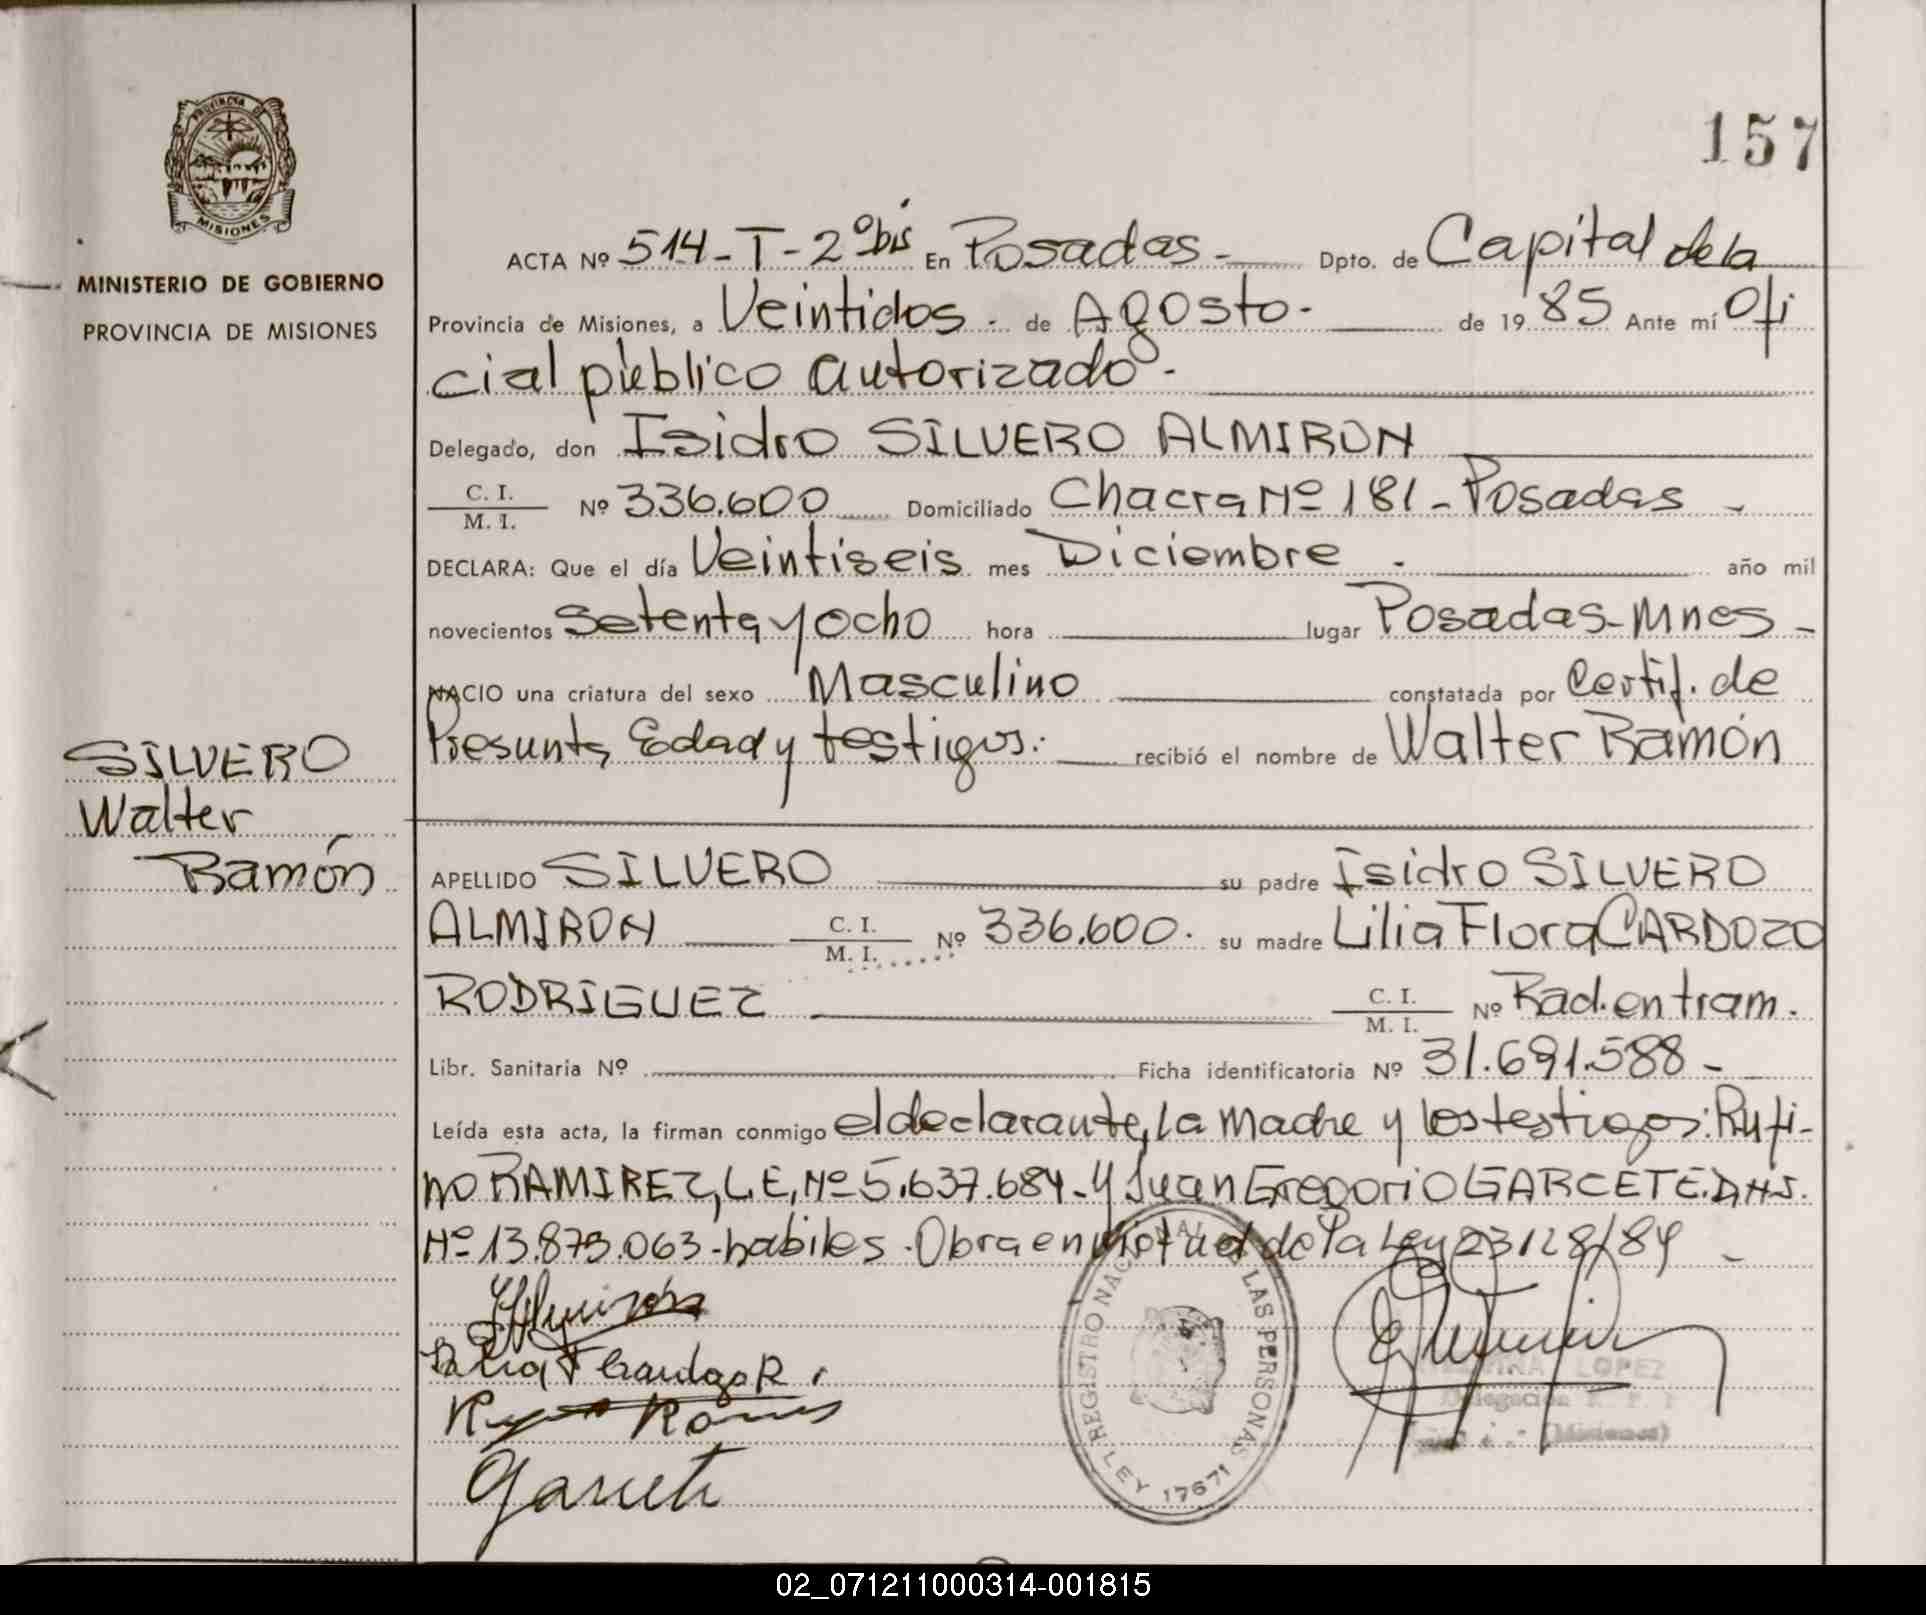 157
PROVINCIA DE
MISIONES
MINISTERIO DE GOBIERNO
PROVINCIA DE MISIONES
ACTA Nº 514-T-2º bis En Posadas - Dpto. de Capital de la
Provincia de Misiones, a Veintidos - de Agosto - de 1985 Ante mí Ofi
cial público autorizado -
Delegado, don Isidro SILVERO ALMIRON
C. I.
M. I. Nº 336.600 Domiciliado Chacra Nº 181 - Posadas -
DECLARA: Que el día Veintiseis mes Diciembre - año mil
novecientos Setenta y ocho hora lugar Posadas - Mnes -
NACIO una criatura del sexo Masculino constatada por Certif. de
Presunta Edad y testigos.- recibió el nombre de Walter Ramón
SILVERO
Walter
Ramón
APELLIDO SILVERO su padre Isidro SILVERO
ALMIRON C. I.
M. I. Nº 336.600. su madre Lilia Flora CARDOZO
RODRIGUEZ C. I.
M. I. Nº Rad. en tram.
Libr. Sanitaria Nº Ficha identificatoria Nº 31.691.588 -
Leída esta acta, la firman conmigo el declarante, la madre y los testigos: Rufi-
no RAMIREZ, L.E. Nº 5.637.684 - y Juan Gregorio GARCETE. D.N.I.
Nº 13.873.063 - habiles. Obra en virtud de la Ley 23128/84 -
REGISTRO NACIONAL LAS PERSONAS
LEY 17671
LOPEZ
Delegación
(Misiones)
Garcete
02_071211000314-001815